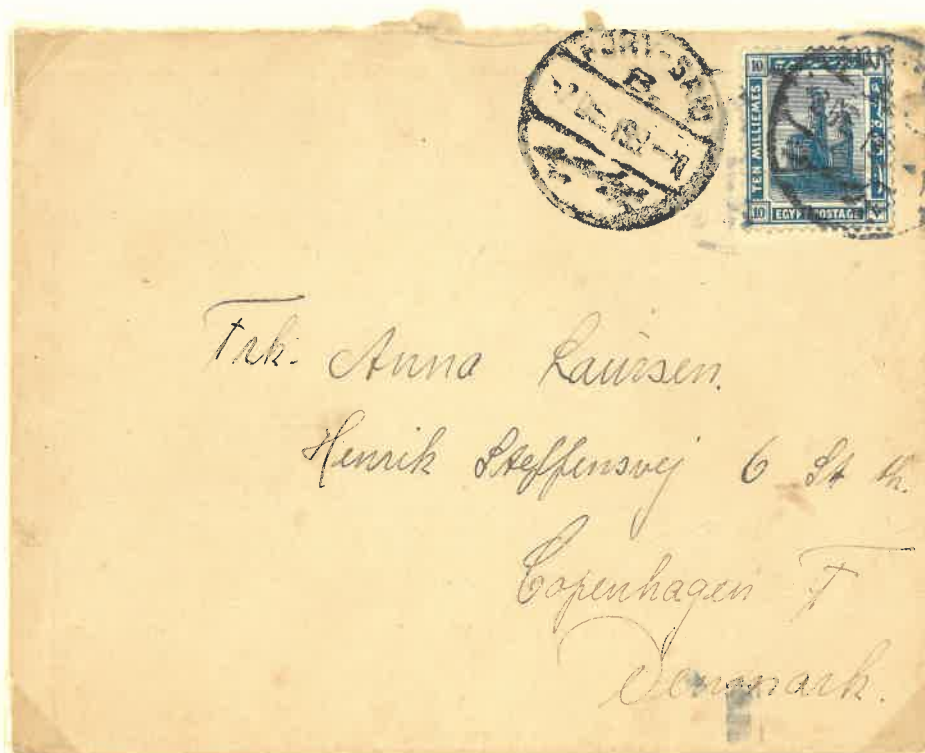 PORT-SAID
10
TEN MILLIEMES
10 EGYPT POSTAGE
Frk. Anna Laursen.
Henrik Steffensvej 6 St th.
Copenhagen F
Denmark.